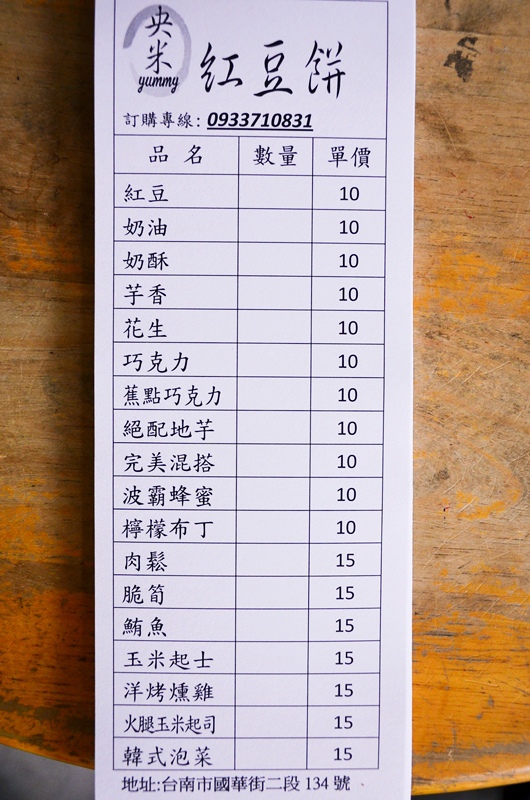 央米
yummy
紅豆餅
訂購專線: 0933710831
品名 數量 單價
紅豆 10
奶油 10
奶酥 10
芋香 10
花生 10
巧克力 10
蕉點巧克力 10
絕配地芋 10
完美混搭 10
波霸蜂蜜 10
檸檬布丁 10
肉鬆 15
脆筍 15
鮪魚 15
玉米起士 15
洋烤燻雞 15
火腿玉米起司 15
韓式泡菜 15
地址:台南市國華街二段 134 號